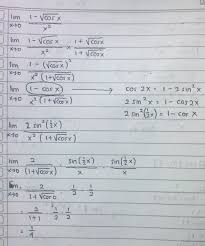 lim x→0 (1 - √cos x) / x²
lim x→0 (1 - √cos x) / x² × (1 + √cos x) / (1 + √cos x)
lim x→0 (1 - (√cos x)²) / (x² (1 + √cos x))
lim x→0 (1 - cos x) / (x² (1 + √cos x)) → cos 2x = 1 - 2 sin² x
2 sin² x = 1 - cos 2x
2 sin² (½x) = 1 - cos x
lim x→0 2 sin² (½x) / (x² (1 + √cos x))
lim x→0 2 / (1 + √cos x) · sin (½x) / x · sin (½x) / x
lim x→0 2 / (1 + √cos 0) · ½ · ½
= 2 / (1 + 1) · ½ · ½
= ¼